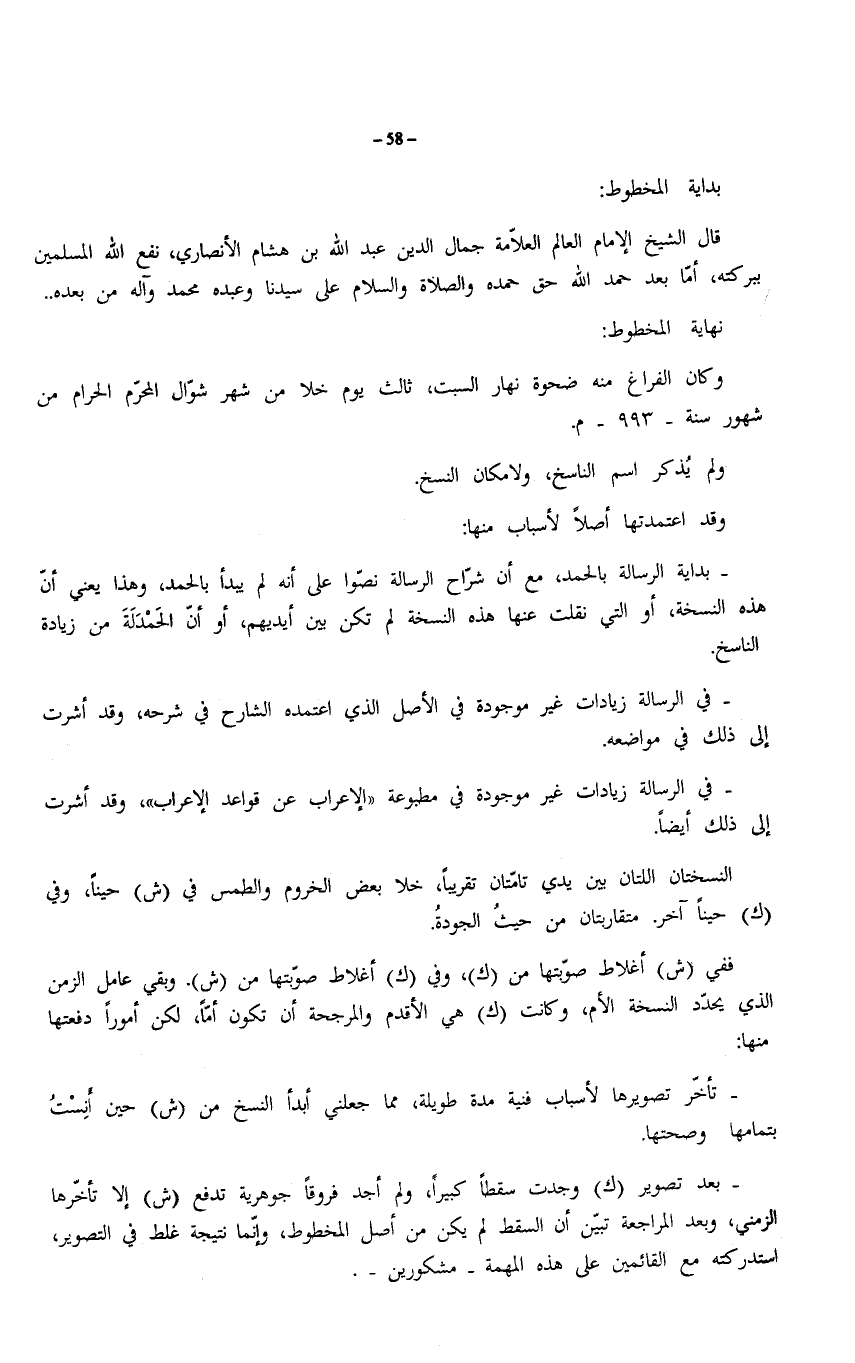 - 58 -
بداية المخطوط:
قال الشيخ الإمام العالم العلاّمة جمال الدين عبد الله بن هشام الأنصاري، نفع الله المسلمين
ببركته، أمّا بعد حمد الله حق حمده والصلاة والسلام على سيدنا وعبده محمد وآله من بعده..
نهاية المخطوط:
وكان الفراغ منه ضحوة نهار السبت، ثالث يوم خلا من شهر شوّال المحرّم الحرام من
شهور سنة ـ ٩٩٣ ـ م.
ولم يُذكر اسم الناسخ، ولامكان النسخ.
وقد اعتمدتها أصلاً لأسباب منها:
ـ بداية الرسالة بالحمد، مع أن شرّاح الرسالة نصّوا على أنه لم يبدأ بالحمد، وهذا يعني أنّ
هذه النسخة، أو التي نقلت عنها هذه النسخة لم تكن بين أيديهم، أو أنّ الحَمْدَلَةَ من زيادة
الناسخ.
ـ في الرسالة زيادات غير موجودة في الأصل الذي اعتمده الشارح في شرحه، وقد أشرت
إلى ذلك في مواضعه.
ـ في الرسالة زيادات غير موجودة في مطبوعة «الإعراب عن قواعد الإعراب»، وقد أشرت
إلى ذلك أيضاً.
النسختان اللتان بين يدي تامّتان تقريباً، خلا بعض الخروم والطمس في (ش) حيناً، وفي
(ك) حيناً آخر. متقاربتان من حيثُ الجودةُ.
ففي (ش) أغلاط صوّبتها من (ك)، وفي (ك) أغلاط صوّبتها من (ش). وبقي عامل الزمن
الذي يحدّد النسخة الأم، وكانت (ك) هي الأقدم والمرجحة أن تكون أمّاً، لكن أموراً دفعتها
منها:
ـ تأخّر تصويرها لأسباب فنية مدة طويلة، مما جعلني أبدأ النسخ من (ش) حين أَنِسْتُ
بتمامها وصحتها.
ـ بعد تصوير (ك) وجدت سقطاً كبيراً، ولم أجد فروقاً جوهرية تدفع (ش) إلا تأخّرها
الزمني، وبعد المراجعة تبيّن أن السقط لم يكن من أصل المخطوط، وإنّما نتيجة غلط في التصوير،
استدركته مع القائمين على هذه المهمة ـ مشكورين ـ .